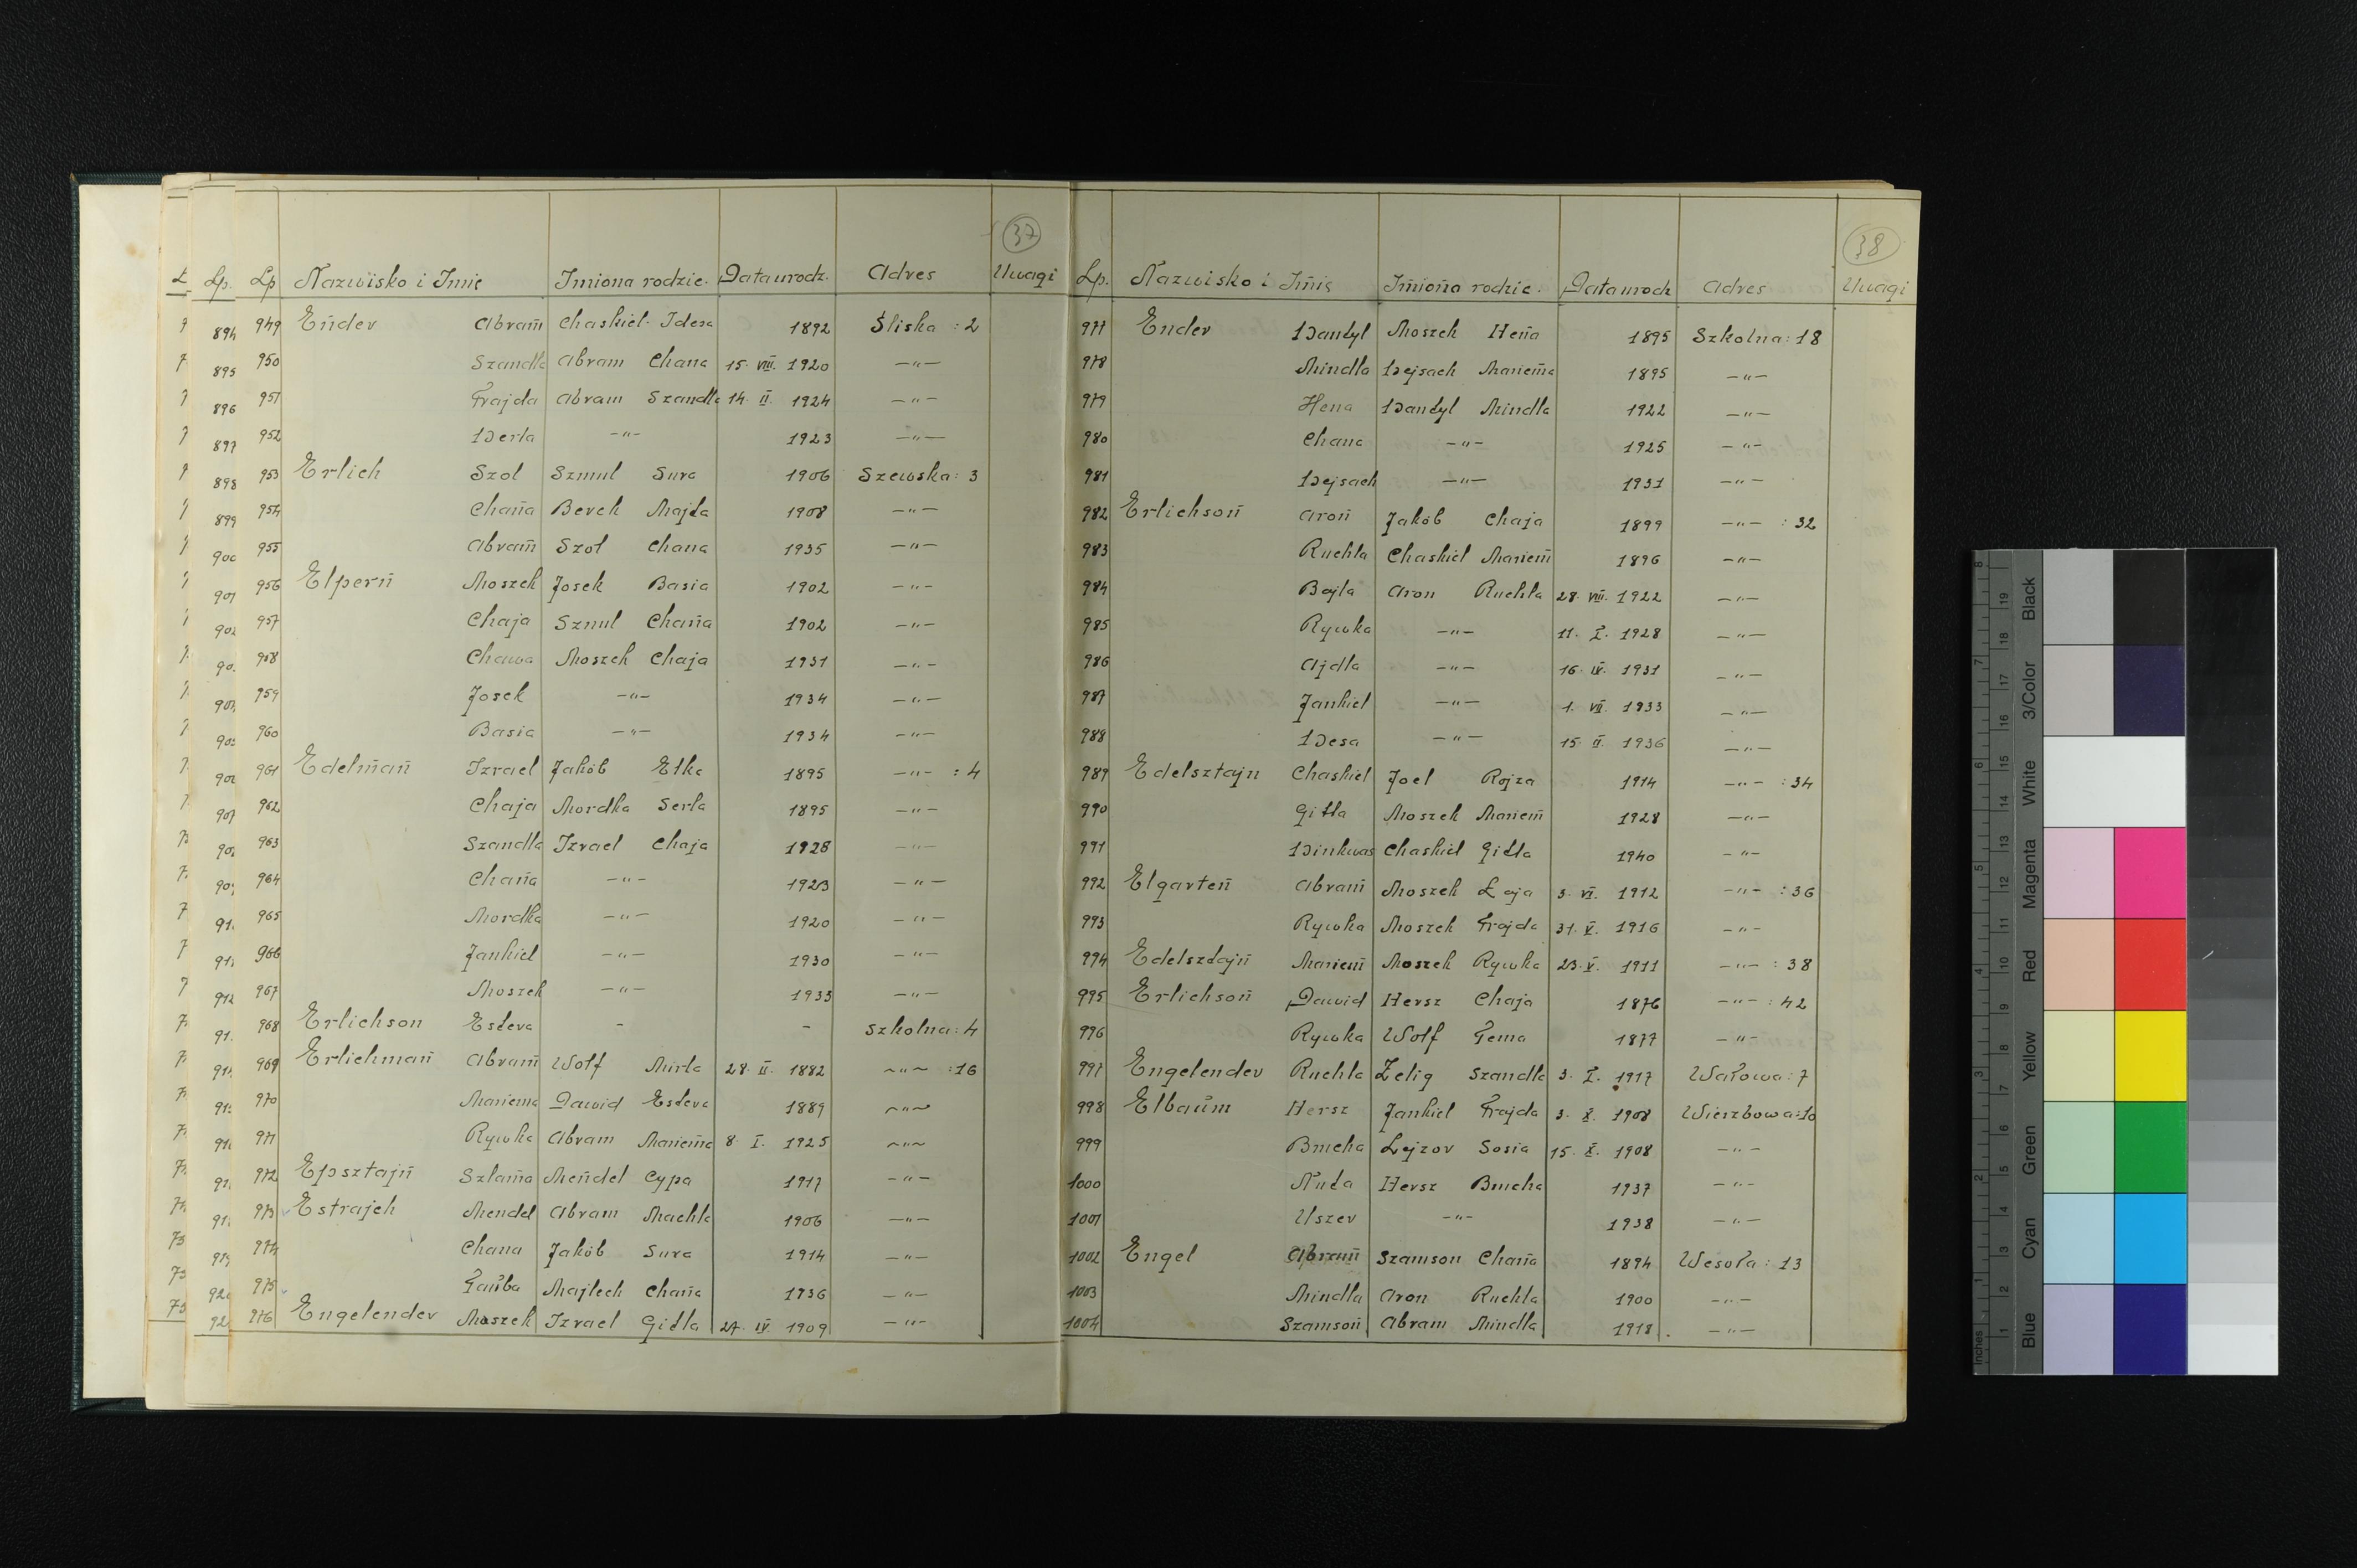 37
Lp. Lp Nazwisko i Imię Imiona rodzic. Data urodz. Adres Uwagi
894 949 Ender Abram Chaskiel Idesa 1892 Śliska : 2
895 950 Szandla Abram Chana 15. VIII. 1920 —"—
896 951 Frajda Abram Szandla 14. II. 1924 —"—
897 952 Perla —"— 1923 —"—
898 953 Erlich Szol Szmul Sura 1906 Szewska : 3
899 954 Chana Berek Majta 1908 —"—
900 955 Abram Szol Chana 1935 —"—
901 956 Elpern Moszek Josek Basia 1902 —"—
902 957 Chaja Szmul Chana 1902 —"—
958 Chawa Moszek Chaja 1931 —"—
959 Josek —"— 1934 —"—
960 Basia —"— 1934 —"—
961 Edelman Izrael Jakób Etka 1895 —"— : 4
962 Chaja Mordka Serla 1895 —"—
963 Szandla Izrael Chaja 1928 —"—
964 Chana —"— 1923 —"—
965 Mordka —"— 1920 —"—
966 Jankiel —"— 1930 —"—
912 967 Moszek —"— 1933 —"—
968 Erlichson Estera - - Szkolna : 4
969 Erlichman Abram Wolf Mirla 28. II. 1882 —"— : 16
970 Mariema Dawid Estera 1889 —"—
971 Rywka Abram Mariema 8. I. 1925 —"—
972 Epsztajn Szlama Mendel Cypa 1917 —"—
973 Estrajch Mendel Abram Machla 1906 —"—
974 Chana Jakób Sura 1914 —"—
975 Tauba Majlech Chana 1936 —"—
976 Engelender Moszek Izrael Gidla 27. IV. 1909 —"—
38
Lp. Nazwisko i Imię Imiona rodzic. Data urodz Adres Uwagi
977 Ender Pantyl Moszek Hena 1895 Szkolna : 18
978 Mindla Pejsach Mariema 1895 —"—
979 Hena Pantyl Mindla 1922 —"—
980 Chana —"— 1925 —"—
981 Pejsach —"— 1931 —"—
982 Erlichson Aron Jakób Chaja 1899 —"— : 32
983 Ruchla Chaskiel Mariem 1896 —"—
984 Bajla Aron Ruchla 28. VIII. 1922 —"—
985 Rywka —"— 11. I. 1928 —"—
986 Ajdla —"— 16. IV. 1931 —"—
987 Jankiel —"— 1. VII. 1933 —"—
988 Pesa —"— 15. II. 1936 —"—
989 Edelsztajn Chaskiel Joel Rojza 1914 —"— : 34
990 Gitla Moszek Mariem 1928 —"—
991 Pinkwas Chaskiel Gitla 1940 —"—
992 Elgarten Abram Moszek Łaja 3. VI. 1912 —"— : 36
993 Rywka Moszek Frajda 31. V. 1916 —"—
994 Edelsztajn Mariem Moszek Rywka 23. V. 1911 —"— : 38
995 Erlichson Dawid Hersz Chaja 1876 —"— : 42
996 Rywka Wolf Tema 1877 —"—
997 Engelender Ruchla Zelig Szandla 3. I. 1917 Wałowa : 7
998 Elbaum Hersz Jankiel Frajda 3. X. 1908 Wierzbowa : 10
999 Brucha Lejzor Sosia 15. X. 1908 —"—
1000 Nuta Hersz Brucha 1937 —"—
1001 Uszer —"— 1938 —"—
1002 Engel Abram Szamson Chana 1894 Wesoła : 13
1003 Mindla Aron Ruchla 1900 —"—
1004 Szamson Abram Mindla 1918 . —"—
Inches
1 2 3 4 5 6 7 8
1 2 3 4 5 6 7 8 9 10 11 12 13 14 15 16 17 18 19
Blue Cyan Green Yellow Red Magenta White 3/Color Black